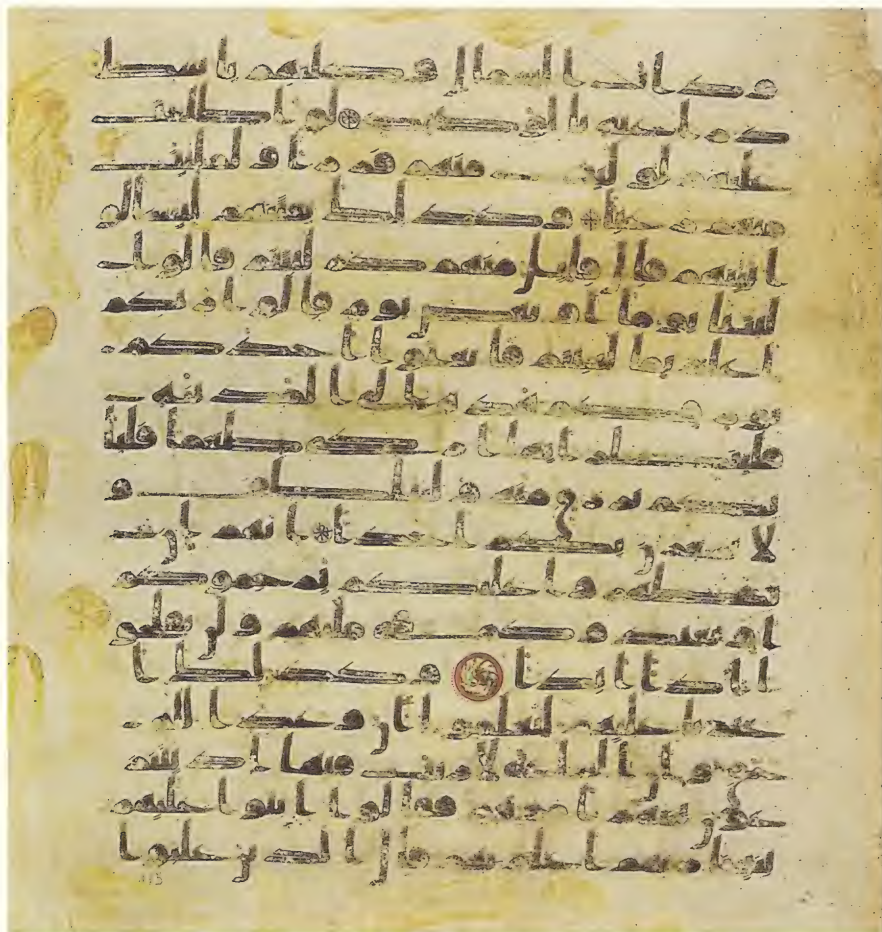 وذات الشمال وكلبهم باسط
ذراعيه بالوصيد لو اطلعت
عليهم لوليت منهم فرارا ولملئت
منهم رعبا وكذلك بعثنهم ليتسالو
ا بينهم قال قايل منهم كم لبثتم قالوا
لبثنا يوما او بعض يوم قالوا ربكم
اعلم بما لبثتم فابعثوا احدكم
بورقكم هذه الى المدينه
فلينظر ايها ازكى طعاما فليا
تكم برزق منه وليتلطف و
لا يشعرن بكم احدا انهم ان
يظهروا عليكم يرجموكم
او يعيدوكم في ملتهم ولن تفلحو
ا اذا ابدا وكذلك ا
عثرنا عليهم ليعلموا ان وعد الله
حق وان الساعه لا ريب فيها اذ يتنز
عون بينهم امرهم فقالوا ابنوا عليهم
بنينا ربهم اعلم بهم قال الذين غلبوا